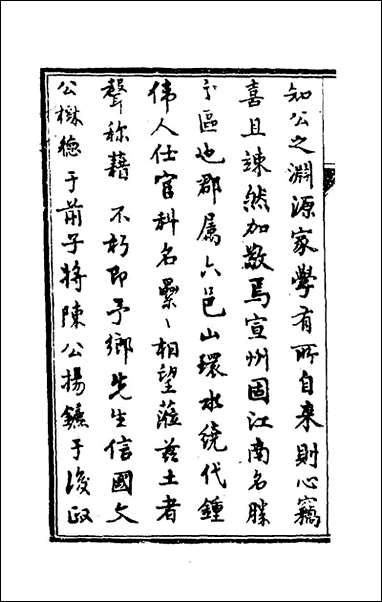 知公之淵源家學有所自来則心竊
喜且竦然加敬焉宣州固江南名勝
之區也郡属六邑山環水繞代鍾
偉人仕宦科名纍〻相望蒞兹土者
聲称藉　不朽即予鄉先生信國文
公樹德于前子將陳公揚鑣于後政